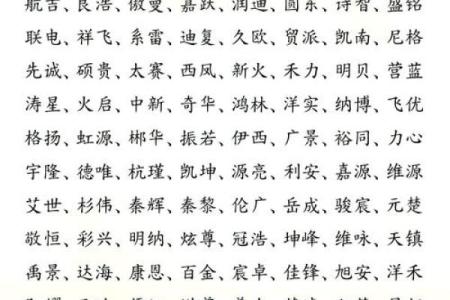 航吉、良浩、傲曼、嘉跃、润迪、圆东、诗智、盛铭
联电、祥飞、系雷、迪复、久欧、贸派、凯南、尼格
先诚、硕贵、太赛、西风、新火、禾力、明贝、营蓝
涛星、火启、中新、奇华、鸿林、洋实、纳博、飞优
格扬、虹源、郴华、振若、伊西、广景、裕同、力心
宇隆、德唯、杭瑾、凯坤、源亮、利安、嘉源、维源
艾世、杉伟、秦辉、秦黎、伦广、岳成、骏宸、元楚
敬恒、彩兴、明纳、炫尊、冠浩、坤峰、维咏、天镇
禹景、达海、康恩、百金、宸卓、佳锋、旭安、洋禾